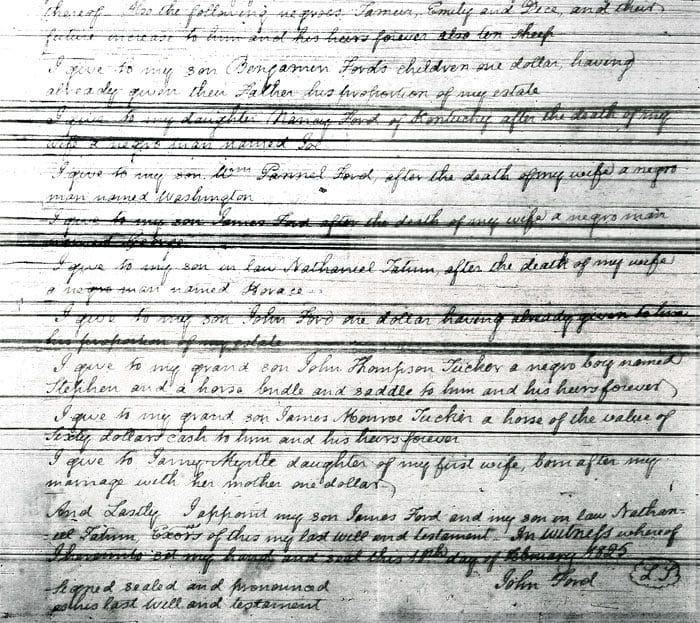 thereof. Also the following negroes, Tamer, Emily and Dice, and their
future increase to him and his heirs forever also ten sheep
I give to my son Benjamin Fords children one dollar, having
already given their Father his proportion of my estate
I give to my daughter Nancy Ford of Kentucky after the death of my
wife a negro man named Joe
I give to my son Wm Pannel Ford, after the death of my wife a negro
man named Washington
I give to my son James Ford after the death of my wife a negro man
named George
I give to my son in law Nathaniel Tatum, after the death of my wife
a negro man named Horace
I give to my son John Ford one dollar having already given to him
his proportion of my estate
I give to my grand son John Thompson Tucker a negro boy named
Stephen and a horse bridle and saddle to him and his heirs forever
I give to my grand son James Monroe Tucker a horse of the value of
sixty dollars cash to him and his heirs forever
I give to Myrtle daughter of my first wife, born after my
marriage with her mother one dollar
And Lastly I appoint my son James Ford and my son in law Nathan-
iel Tatum, Exors of this my last will and testament. In witness whereof
I hereunto set my hand and seal this day of February 1825
John Ford L.S.
Signed sealed and pronounced
as his last will and testament